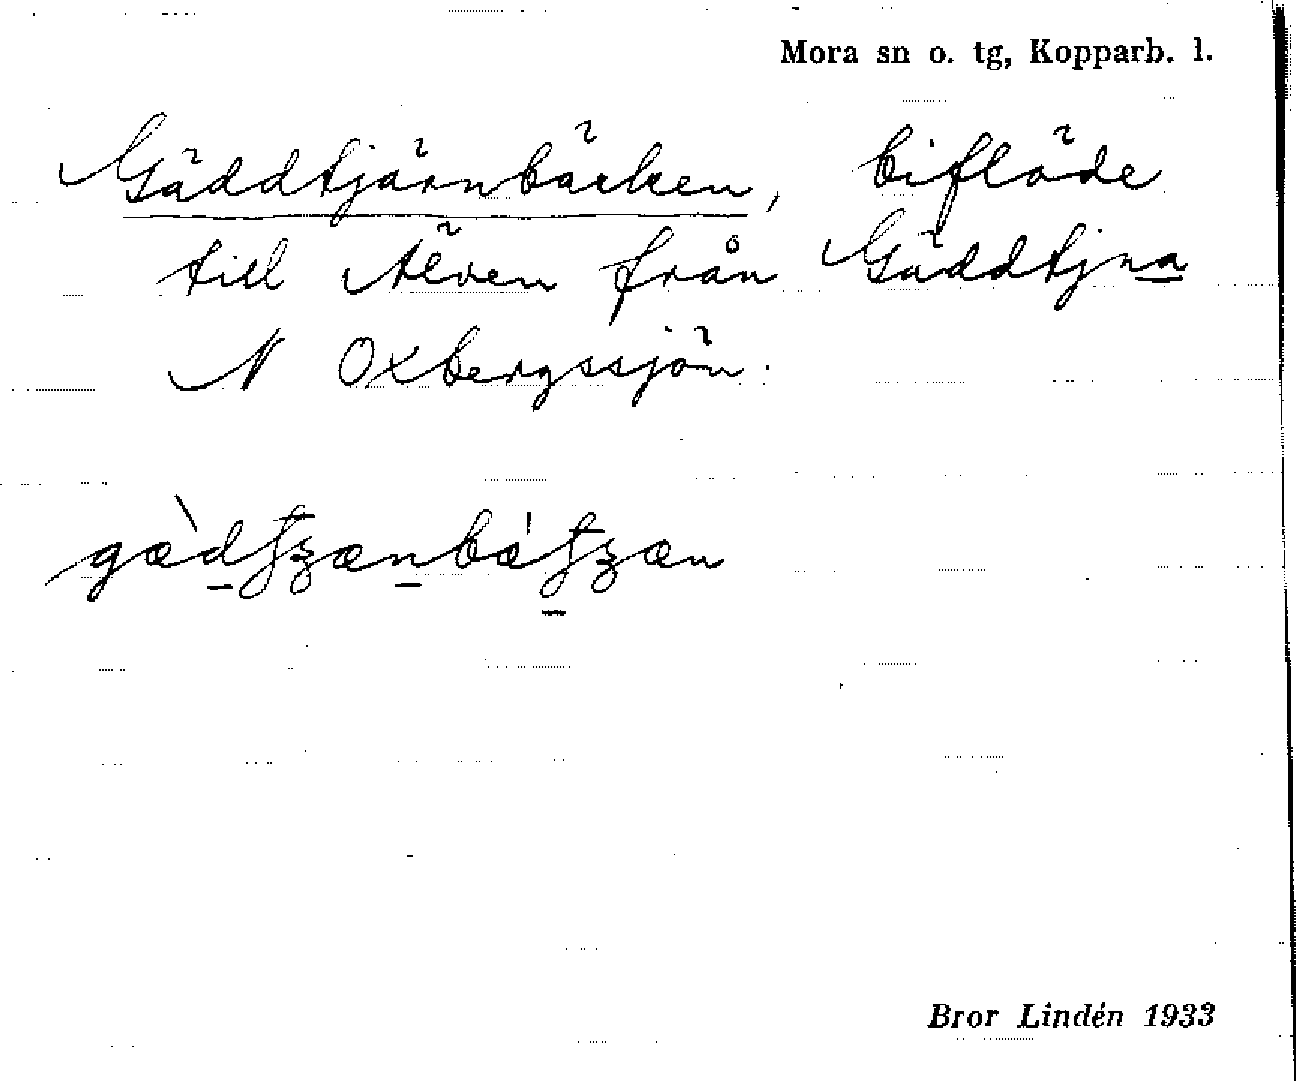 Mora sn o. tg, Kopparb. l.
Gäddtjärnbäcken, biflöde
till Älven från Gäddtjna
N Oxbergssjön.
Bror Lindén 1933